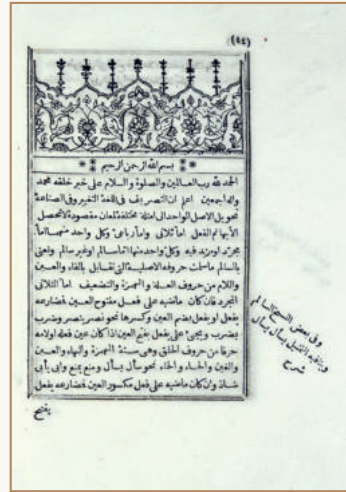 (٤٤)
بسم الله الرحمن الرحيم
الحمد لله رب العالمين والصلوة والسلام على خير خلقه محمد
وآله اجمعين اعلم ان التصريف فى اللغة التغيير وفى الصناعة
تحويل الاصل الواحد الى امثلة مختلفة لمعان مقصودة لا تحصل
الا بها ثم الفعل اما ثلاثى واما رباعى وكل واحد منهما اما
مجرد او مزيد فيه وكل واحد منها اما سالم او غير سالم ونعنى
بالسالم ما سلمت حروفه الاصلية التى تقابل بالفاء والعين
واللام من حروف العلة والهمزة والتضعيف اما الثلاثى
المجرد فان كان ماضيه على فعل مفتوح العين فمضارعه
يفعل او يفعل بضم العين وكسرها نحو نصر ينصر وضرب
يضرب ويجئ على يفعل بفتح العين اذا كان عين فعله او لامه
حرفا من حروف الحلق وهى ستة الهمزة والهاء والعين
والغين والحاء والخاء نحو سأل يسأل ومنع يمنع وابى يأبى
شاذ وان كان ماضيه على فعل مكسور العين فمضارعه يفعل
يفتح
وفى بعض النسخ
يسأل
شرح